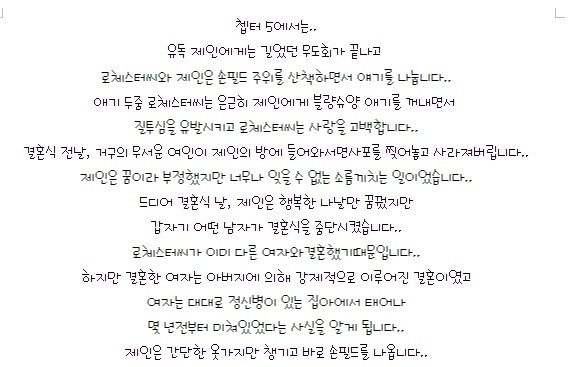 챕터 5에서는..
유독 제인에게는 길었던 무도회가 끝나고
로체스터씨와 제인은 손필드 주위를 산책하면서 얘기를 나눕니다..
얘기 두중 로체스터씨는 은근히 제인에게 블랑슈양 얘기를 꺼내면서
질투심을 유발시키고 로체스터씨는 사랑을 고백합니다..
결혼식 전날, 거구의 무서운 여인이 제인의 방에 들어와서면사포를 찢어놓고 사라져버립니다..
제인은 꿈이라 부정했지만 너무나 잊을 수 없는 소름끼치는 일이었습니다..
드디어 결혼식 날, 제인은 행복한 나날만 꿈꿨지만
갑자기 어떤 남자가 결혼식을 중단시켰습니다..
로체스터씨가 이미 다른 여자와결혼했기때문입니다..
하지만 결혼한 여자는 아버지에 의해 강제적으로 이루어진 결혼이였고
여자는 대대로 정신병이 있는 집아에서 태어나
몇 년전부터 미쳐있었다는 사실을 알게 됩니다..
제인은 간단한 옷가지만 챙기고 바로 손필드를 나옵니다..